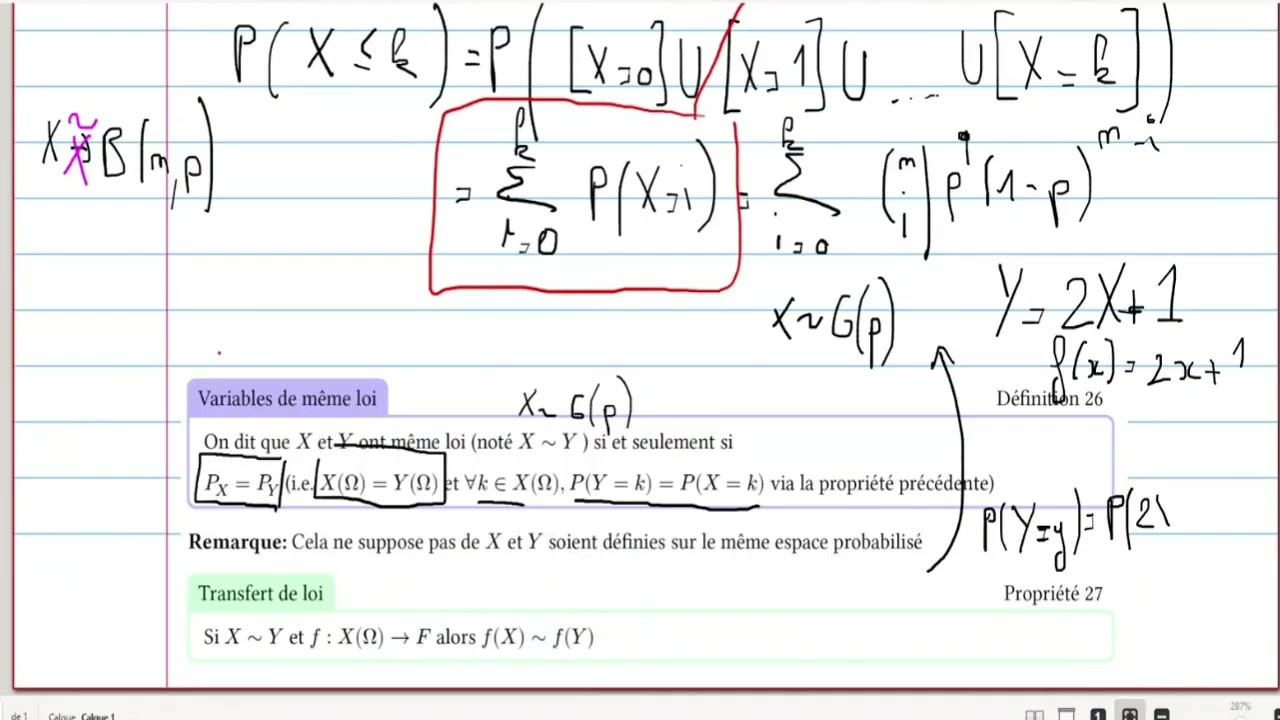 P(X ≤ k) = P([X=0] U [X=1] U ... U [X=k])
X ~ B(n,p)
= Σ_{i=0}^{k} P(X=i) = Σ_{i=0}^{k} (n i) p^i (1-p)^{n-i}
X ~ G(p)
Y = 2X+1
f(x) = 2x+1
Variables de même loi
X ~ G(p)
Définition 26
On dit que X et Y ont même loi (noté X ∼ Y ) si et seulement si
P_X = P_Y (i.e. X(Ω) = Y(Ω) et ∀k ∈ X(Ω), P(Y = k) = P(X = k) via la propriété précédente)
P(Y=y) = P(2
Remarque: Cela ne suppose pas de X et Y soient définies sur le même espace probabilisé
Transfert de loi
Propriété 27
Si X ∼ Y et f : X(Ω) → F alors f(X) ∼ f(Y)
de 1
Calque
Calque 1
287%